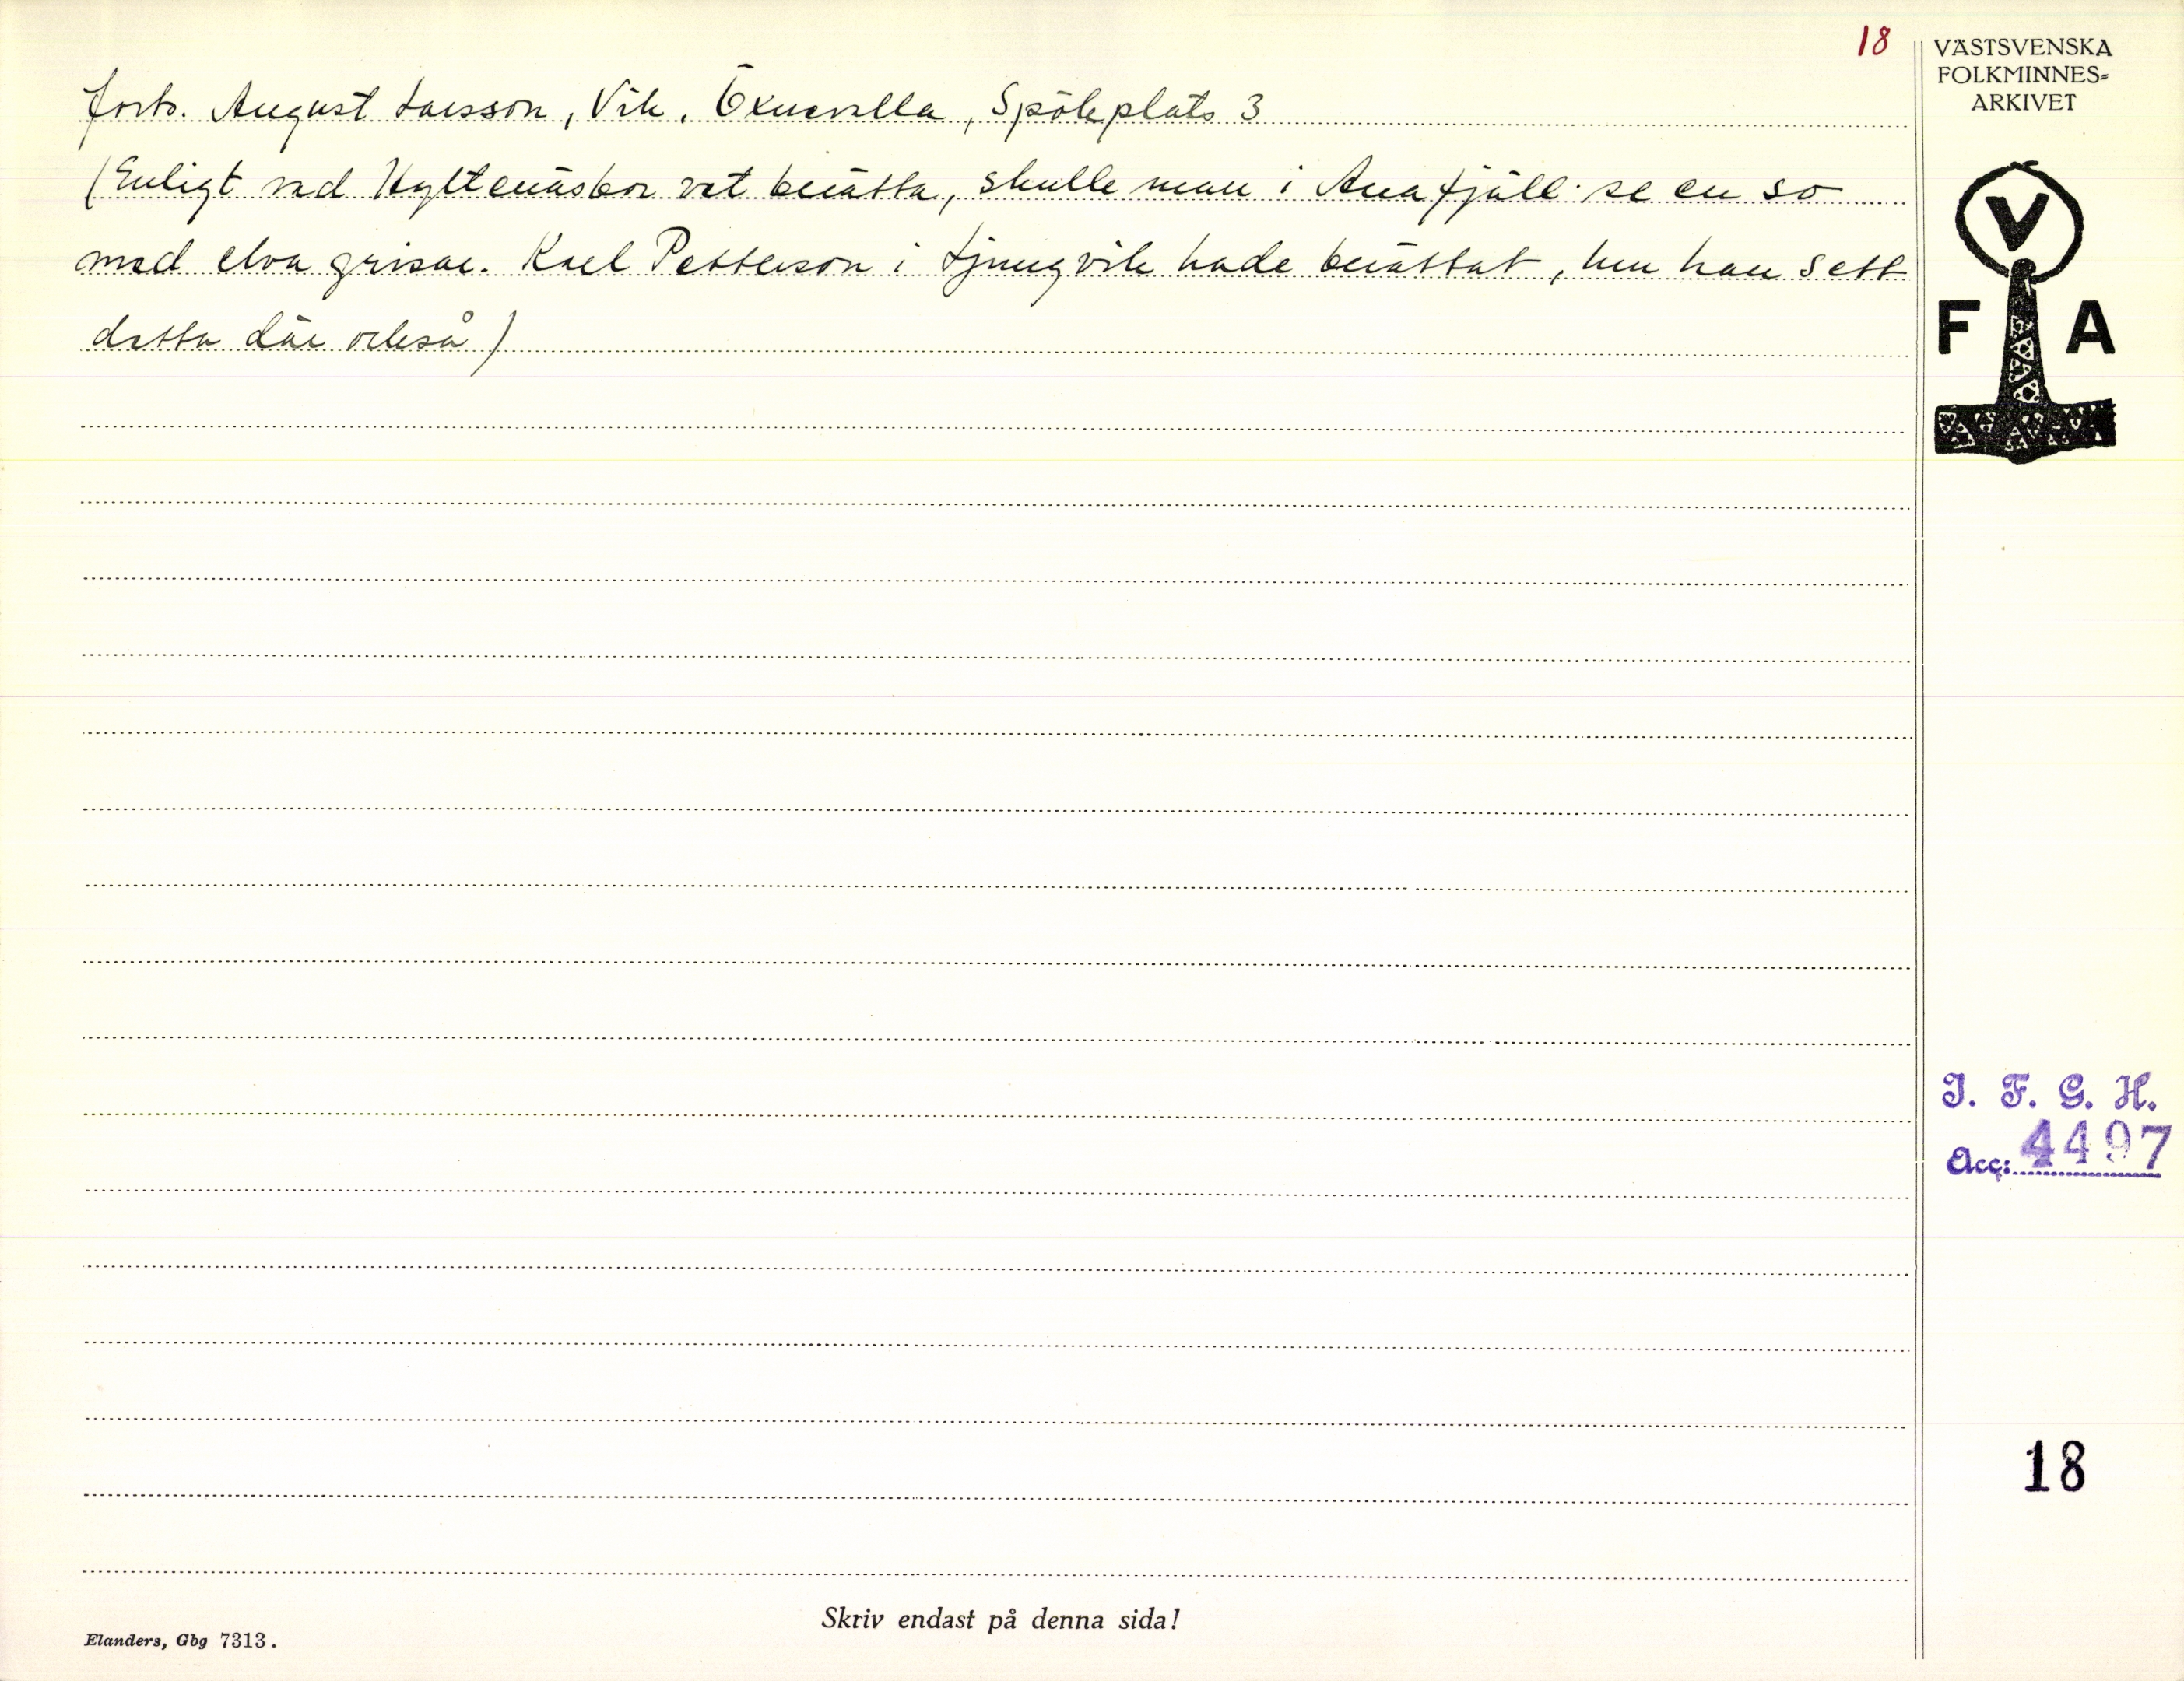 18
forts. August Larsson, Vik. Öxnevalla, Spökplats 3
(Enligt vad Hyltenäsbor vet berätta, skulle man i Anafjäll se en so
med elva grisar. Karl Petterson i Ljungvik hade berättat, hur han sett
detta där också)
VÄSTSVENSKA
FOLKMINNES-
ARKIVET
V
F A
I. F. G. H.
Acc: 4497
18
Skriv endast på denna sida!
Elanders, Gbg 7313.